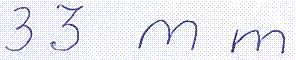 3 3 m m